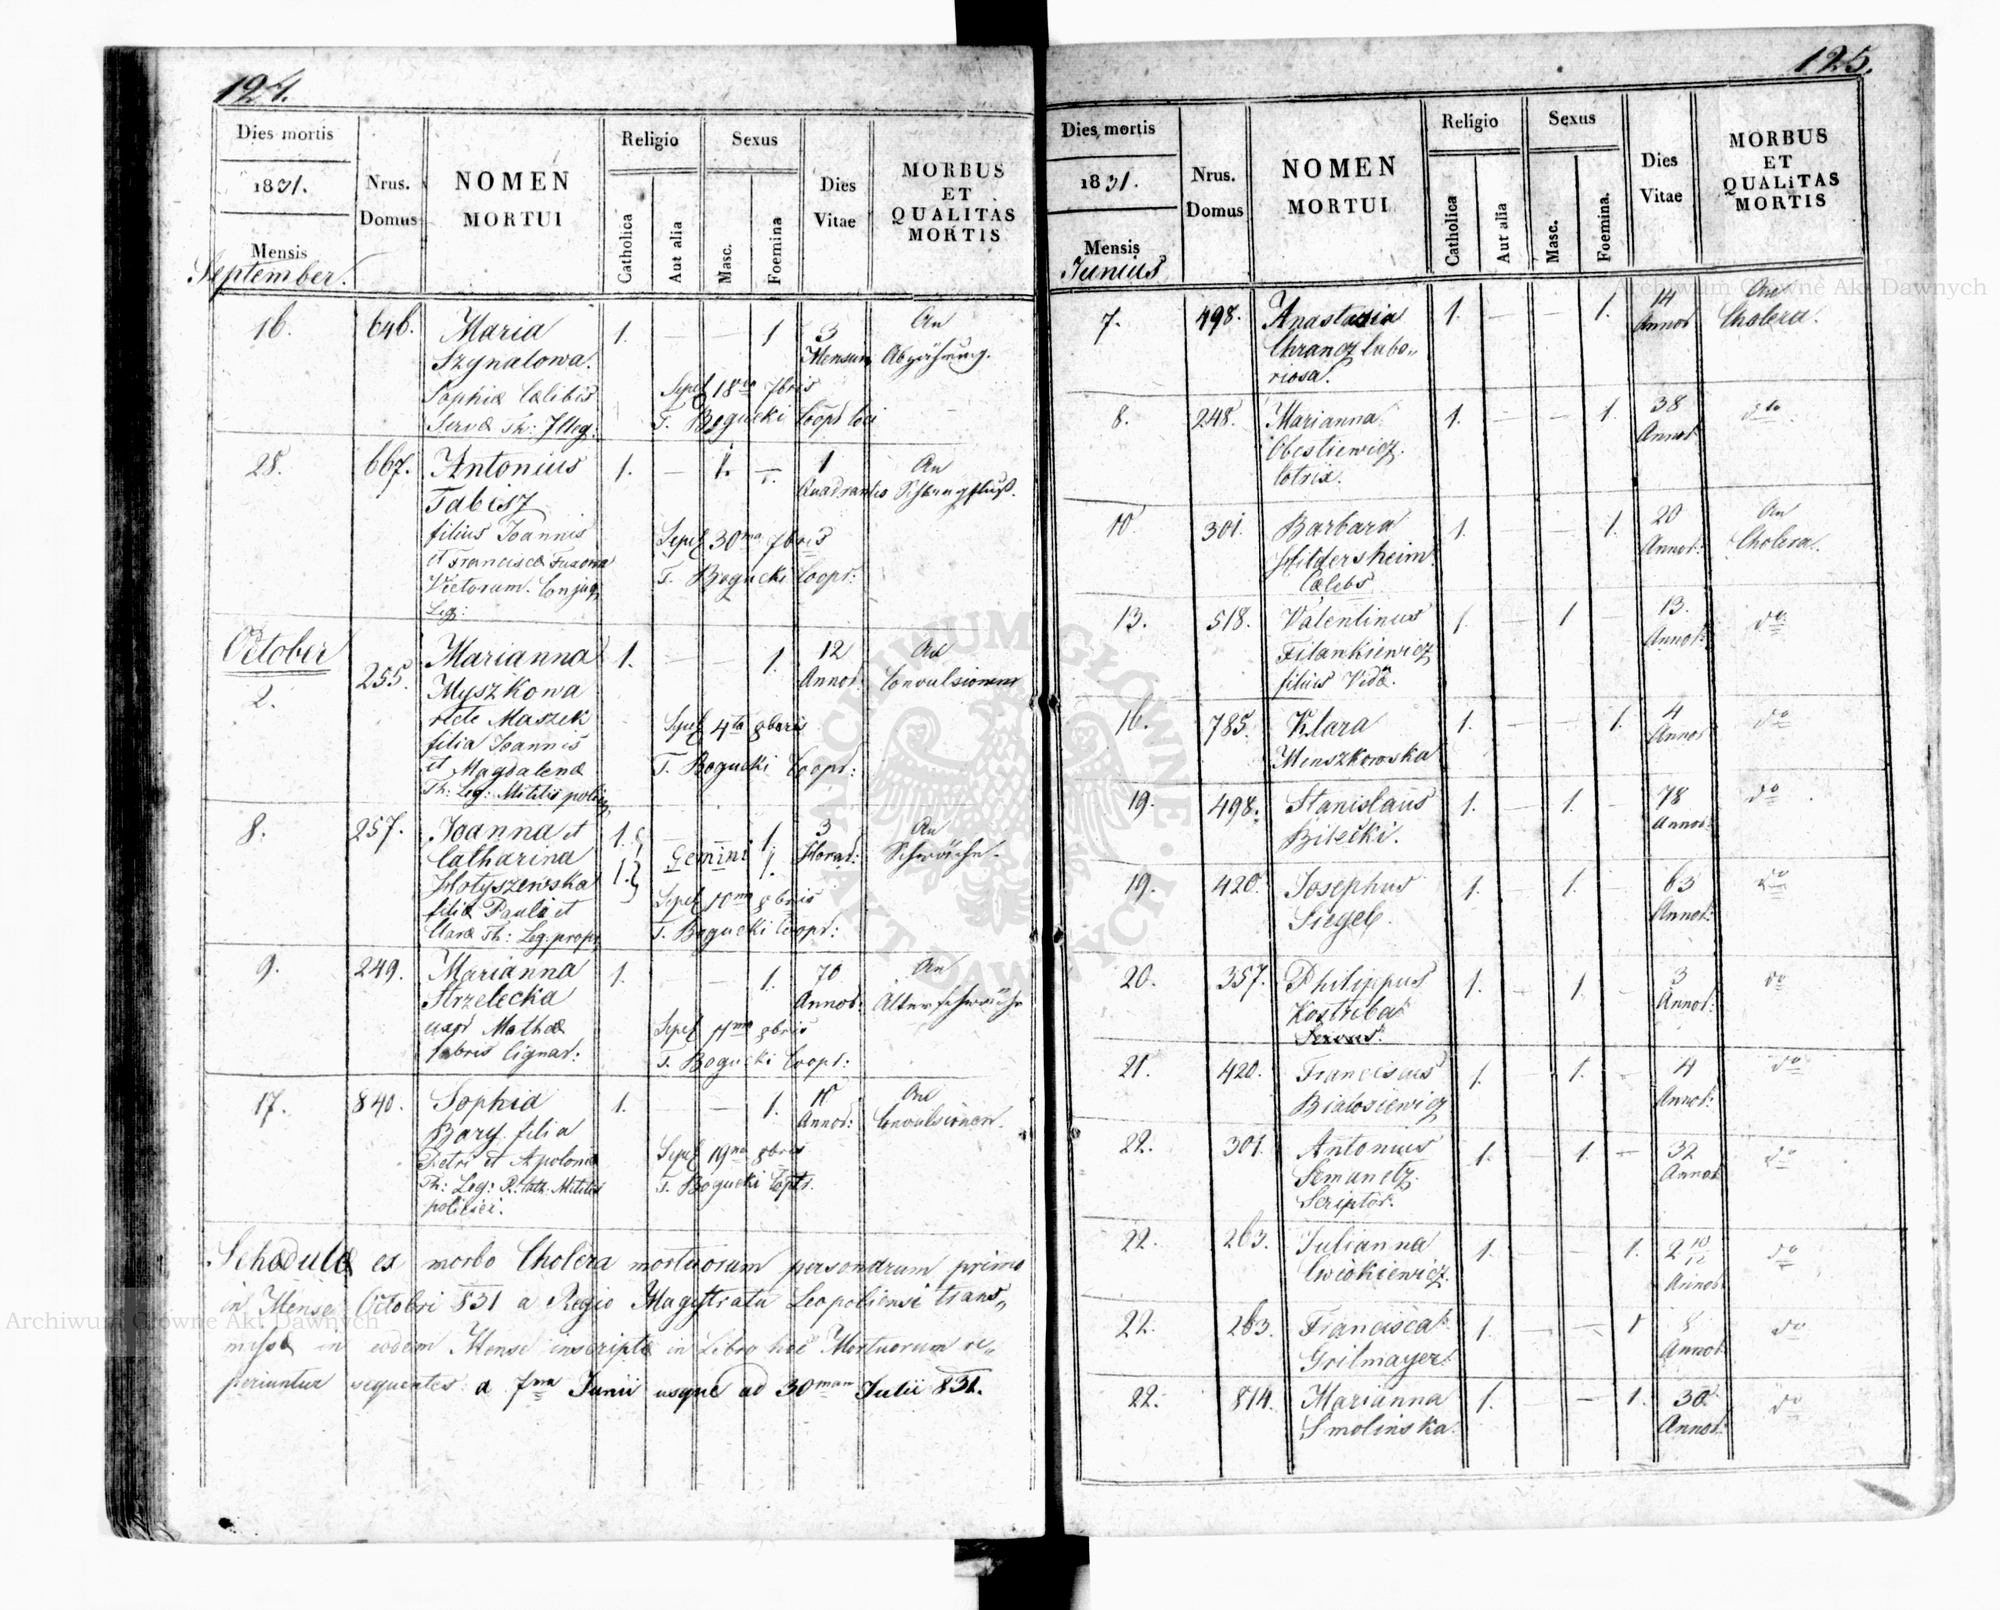 124.
Dies mortis
1831.
Mensis
September.
Nrus.
Domus
NOMEN
MORTUI
Religio
Catholica
Aut alia
Sexus
Masc.
Foemina
Dies
Vitae
MORBUS
ET
QUALITAS
MORTIS
16. 646. Maria 1. — — 1 3 An
Szynalowa. Mensium Abzährung.
Sophiæ Cælibis Sepel 18va 7bris
Servæ Th: Illeg: T. Bogucki Coopr Loci
28. 667. Antonius 1. — 1. — 1 An
Tabisz Quadrantis
filius Joannis Sepel 30ma 7bris
et Franciscæ
T. Bogucki Coopr:
Conjug.
Leg:
October
2. 255. Marianna 1. — — 1. 12 An
Myszkowa Annor: Convulsionen
recte Maszek Sepel 4ta 8bris
filia Joannis
et Magdalenæ T. Bogucki Coopr:
Th: Leg: Militis
8. 257. Joanna et 1. — 1. 3 An
Catharina 1. Gemini 1. Horar: Schwäche.
Hotyszewska
filiæ Pauli et Sepel 10ma 8bris
Claræ Th: Leg. propr. T. Bogucki Coopr:
9. 249. Marianna 1. — — 1. 70 An
Strzelecka Annor: Altersschwäche
uxor Mathæ Sepel 11ma 8bris
fabris lignar: T. Bogucki Coopr:
17. 840. Sophia 1. — 1. An
Bary filia Annor: Convulsionen.
Petri et Apoloniæ Sepel 19na 8bris
Th: Leg: R. Cath. Militis T. Bogucki Coptr.
policiei.
Schædulæ ex morbo Cholera mortuorum personarum primo
in Mense Octobri 831 a Regio Magistratu Leopoliensi trans„
missæ in eodem Mense inscriptæ in Libro hoc Mortuorum re„
periuntur sequentes a 7ma Junii usque ad 30mam Julii 831.
125.
Dies mortis
1831.
Mensis
Junius
Nrus.
Domus
NOMEN
MORTUI
Religio
Catholica
Aut alia
Sexus
Masc.
Foemina.
Dies
Vitae
MORBUS
ET
QUALITAS
MORTIS
7. 498. Anastazia 1. — — 1. 14 An
Chrancz labo„ Annor Cholera.
riosa.
8. 248. Marianna 1. — — 1. 38 dto
Obestiewicz. Annor
lotrix.
10 301. Barbara 1. — 1. 20 An
Hildersheim Annor: Cholera.
Cælebs.
13. 518. Valentinus 1. — 1 — 13. do
Filankiewicz Annor:
filius Viduæ.
16. 785. Klara 1. — — 1. 4 do
Menszkowska Annor
19. 498. Stanislaus 1. — 1. — 78 do
Bilecki. Annor:
19. 420. Josephus 1. — 1. — 63 do
Siegel. Annor:
20. 357. Philippus 1. — 1. — 3 do
Kostriba Annor:
21. 420. Franciscus 1. — 1. — 4 do
Bialosiewicz Annor:
22. 301. Antonius 1. — 1. — 32 do
Semanetz. Annor
Scriptor.
22. 263. Julianna 1. — — 1. 2 10/12 do
Cwiokiewicz. Annor
22. 263. Francisca 1. — — 1 8 do
Grilmayer. Annor
22. 814. Marianna 1. — — 1. 30 do
Smolinska. Annor:
Archiwum Główne Akt Dawnych
Archiwum Główne Akt Dawnych
ARCHIWUM GŁÓWNE AKT DAWNYCH